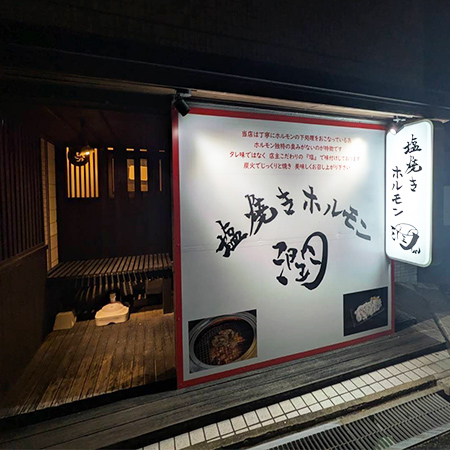 当店は丁寧にホルモンの下処理をおこなっている為
ホルモン独特の臭みがないのが特徴です
タレ味ではなく 店主こだわりの『塩』で味付けしております
炭火でじっくりと焼き 美味しくお召し上がり下さい
塩焼きホルモン
潤
塩焼き
ホルモン
潤